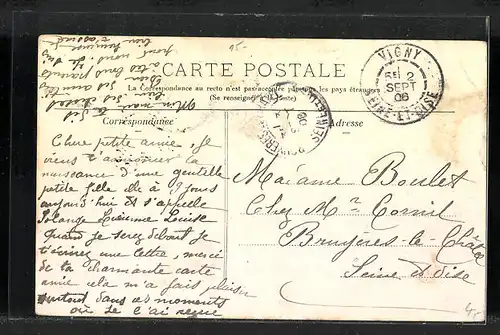 95-
CARTE POSTALE
La Correspondance au recto n'est pas acceptée par tous les pays étrangers
(Se renseigner à la Poste)
Correspondance
Adresse
VIGNY
2
SEPT
06
SEINE-ET-OISE
Chere petite amie, je
viens t'annoncer la
naissance d'une gentille
petite fille elle a 9 jours
aujourd'hui et s'appelle
Solange Lucienne Louise
Quand je serez debout je
t'écrirez une lettre, merci
de ta charmante carte
amie cela m'a fais plaisir
surtout dans ces moments
où je l'ai reçue
Madame Boulet
Chez Mr Cornil
Bruyères-le-Châtel
Seine et Oise
4.-